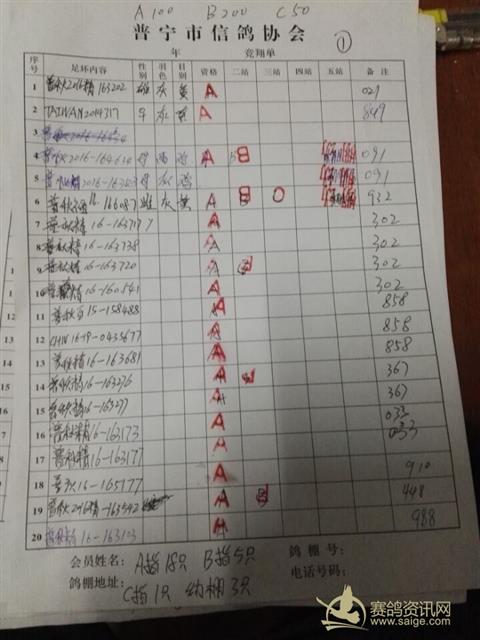 A 100 B 200 C 50
普宁市信鸽协会
①
年 竞翔单
序号 足环内容 性别 羽色 目别 资格 二站 三站 四站 五站 备注
1 普秋2016精 163202 雄 灰 黄 A 021
2 TAIWAN 2014317 灰 黄 A 849
3
4 2016-164614 A B 091
5 2016- 灰 091
6 16-166087 雄 灰 黄 A B O 932
7 普秋精16-163717 A 302
8 普秋精16-163738 A 302
9 普秋精16-163720 A B 302
10 16-160541 A 302
11 普秋 15-158488 A 858
12 CHN 16-19-0435677 A 858
13 16-163681 A 858
14 普秋精16-163276 A B 367
15 普秋精16-163277 A 367
16 普秋精16-163173 A 033
17 普秋精16-163177 A 033
18 普 16-165177 A 910
19 普秋2016精-163542 A B 448
20 16-163103 A 988
会员姓名: A指18只 B指5只 鸽棚号:
鸽棚地址: C指1只 幼棚3只 电话号码:
赛鸽资讯网
www.saige.com